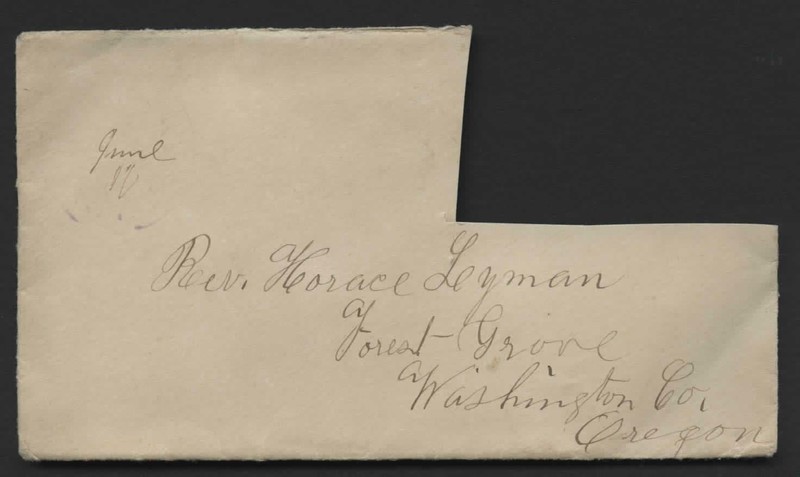 June
Rev. Horace Lyman
Forest Grove
Washington Co,
Oregon